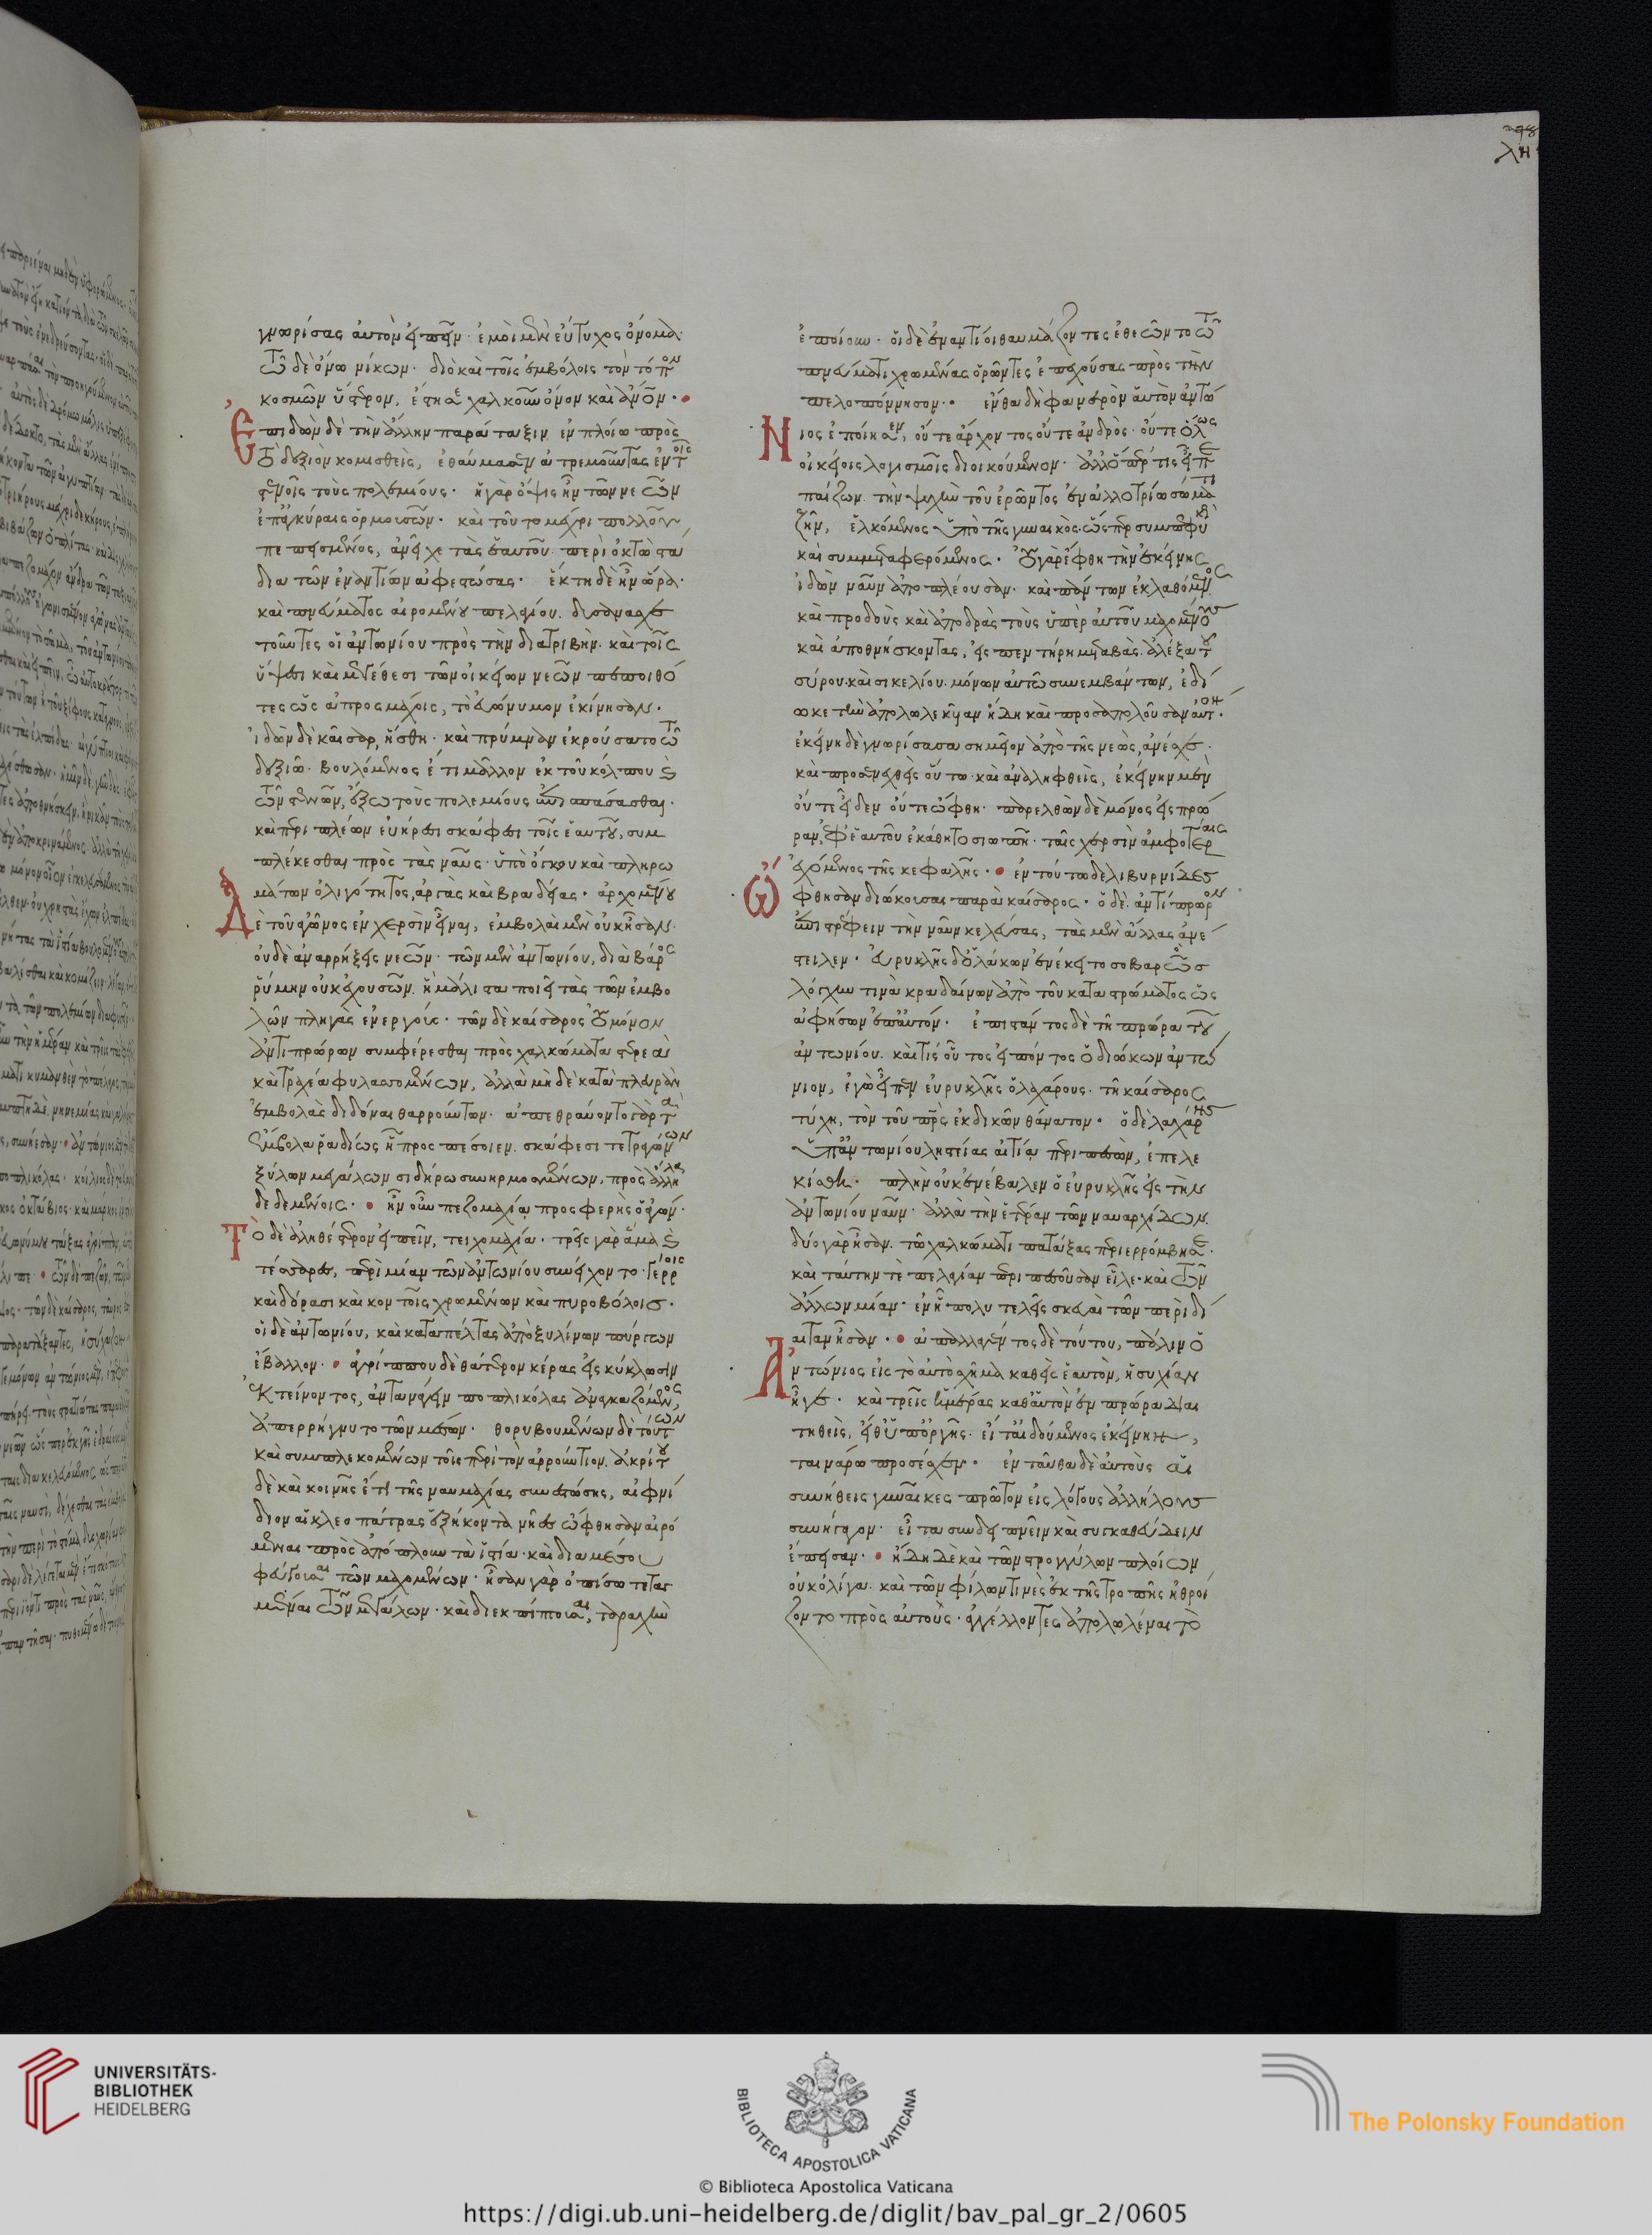 398
λη
γνωρίσας αὐτὸν εἶπεν· ἐμοὶ μὲν εὔτυχος ὄνομα·
τῶ δὲ ὄνω νίκων· διὸ καὶ τοῖς ἐμβόλοις τὸν τόπον
κοσμῶν ὕστερον, ἔστησε χαλκοῦν ὄνον καὶ ἄνθρωπον·
Ἐπιδὼν δὲ τὴν ἄλλην παράταξιν ἐν πλοίω πρὸς
τὸ δεξιὸν κομισθεὶς, ἐθαύμασεν ἀτρεμοῦντας ἐν τοῖς
στενοῖς τοὺς πολεμίους· ἡ γὰρ ὄψις ἦν τῶν νεῶν
ἐπ' ἀγκύραις ὁρμουσῶν· καὶ τοῦτο μέχρι πολλοῦ
πεπεισμένος, ἀνεῖχε τὰς ἑαυτοῦ περὶ ὀκτὼ στά
δια τῶν ἐναντίων ἀφεστώσας· ἕκτη δὲ ἦν ὥρα·
καὶ πνεύματος αἰρομένου πελαγίου. δυσανασχε
τοῦντες οἱ ἀντωνίου πρὸς τὴν διατριβὴν· καὶ τοῖς
ὕψεσι καὶ μεγέθεσι τῶν οἰκείων νεῶν πεποιθό
τες ὡς ἀπροσμάχοις, τὸ εὐώνυμον ἐκίνησαν·
ἰδὼν δὲ καῖσαρ, ἥσθη· καὶ πρύμναν ἐκρούσατο τῶ
δεξιῶ· βουλόμενος ἔτι μᾶλλον ἐκ τοῦ κόλπου καὶ
τῶν στενῶν, ἔξω τοὺς πολεμίους ἐπισπάσασθαι·
καὶ περιπλέων εὐήρεσι σκάφεσι τοῖς ἑαυτοῦ, συμ
πλέκεσθαι πρὸς τὰς ναῦς· ὑπὸ ὄγκου καὶ πληρω
μάτων ὀλιγότητος, ἀργὰς καὶ βραδείας· ἀρχομένου
Δὲ τοῦ ἀγῶνος ἐν χερσὶν εἶναι, ἐμβολαὶ μὲν οὐκ ἦσαν·
οὐδὲ ἀναρρήξεις νεῶν· τῶν μὲν ἀντωνίου, διὰ βάρος
ῥύμην οὐκ ἐχουσῶν. ἣ μάλιστα ποιεῖ τὰς τῶν ἐμβο
λῶν πληγὰς ἐνεργούς· τῶν δὲ καίσαρος οὐ μόνον
ἀντιπρώρων συμφέρεσθαι πρὸς χαλκώματα στερεὰ
καὶ τραχέα φυλασσομένων, ἀλλὰ μηδὲ κατὰ πλευρὰν
ἐμβολὰς διδόναι θαρρούντων· ἀπεθραύοντο γὰρ τὰ
ἔμβολα ῥαδίως ἧ προσπέσοιεν. σκάφεσι τετραγώνων
ξύλων μεγάλων σιδήρω συνηρμοσμένων, πρὸς ἄλληλα
δεδεμένοις· ἦν οὖν πεζομαχία προσφερὴς ὁ ἀγών·
Τὸ δὲ ἀληθέστερον εἰπεῖν, τειχομαχία· τρεῖς γὰρ ἅμα καὶ
τέσσαρες, περὶ μίαν τῶν ἀντωνίου συνείχοντο· γέρροις
καὶ δόρασι καὶ κοντοῖς χρωμένων καὶ πυροβόλοις·
οἱ δὲ ἀντωνίου, καὶ καταπέλταις ἀπὸ ξυλίνων πύργων
ἔβαλλον· ἀγρίππου δὲ θάτερον κέρας εἰς κύκλωσιν
ἐκτείνοντος, ἀντανάγειν ποπλικόλας ἀναγκαζόμενος,
ἀπερρήγνυτο τῶν μέσων· θορυβουμένων δὲ τούτων
καὶ συμπλεκομένων τοῖς περὶ τὸν ἀρρούντιον. ἀκρίτου
δὲ καὶ κοινῆς ἔτι τῆς ναυμαχίας συνεστώσης, αἰφνί
διον αἱ κλεοπάτρας ἑξήκοντα νῆες ὤφθησαν αἰρό
μεναι πρὸς ἀπόπλουν τὰ ἱστία· καὶ διὰ μέσου
φεύγουσαι τῶν μαχομένων· ἦσαν γὰρ ὀπίσω τεταγ
μέναι τῶν μεγάλων· καὶ διεκπίπτουσαι, ταραχὴν
ἐποίουν· οἱ δὲ ἐναντίοι θαυμάζοντες ἐθεῶντο τῶ
πνεύματι χρωμένας ὁρῶντες ἐπεχούσας πρὸς τὴν
πελοπόννησον· ἔνθα δὴ φανερὸν αὑτὸν ἀντώ
Νιος ἐποίησεν, οὔτε ἄρχοντος οὔτε ἀνδρὸς· οὔτε ὅλως
οἰκείοις λογισμοῖς διοικούμενον· ἀλλ' ὅπερ τις εἶπε
παίζων. τὴν ψυχὴν τοῦ ἐρῶντος ἐν ἀλλοτρίω σώματι
ζῆν, ἑλκόμενος ὑπὸ τῆς γυναικὸς· ὥσπερ συμπεφυκὼς
καὶ συμμεταφερόμενος· οὐ γὰρ ἔφθη τὴν ἐκείνης
ἰδὼν ναῦν ἀποπλέουσαν· καὶ πάντων ἐκλαθόμενος
καὶ προδοὺς καὶ ἀποδρὰς τοὺς ὑπὲρ αὐτοῦ μαχομένους
καὶ ἀποθνήσκοντας, εἰς πεντήρη μεταβὰς. ἀλέξα τοῦ
σύρου· καὶ σικελίου. μόνων αὐτῶ συνεμβάντων, ἐδί
ωκε τὴν ἀπολωλεκυῖαν ἤδη καὶ προσαπολοῦσαν αὐτόν·
ἐκείνη δὲ γνωρίσασα σημεῖον ἀπὸ τῆς νεὼς, ἀνέσχε·
καὶ προσενεχθεὶς οὕτω· καὶ ἀναληφθεὶς, ἐκείνην μὲν
οὔτε εἶδεν οὔτε ὤφθη· παρελθὼν δὲ μόνος εἰς πρῶ
ραν, ἐφ' ἑαυτοῦ ἐκάθητο σιωπῆ· ταῖς χερσὶν ἀμφοτέραις
ἐχόμενος τῆς κεφαλῆς· ἐν τούτω δὲ λιβυρνίδες
Ὤφθησαν διώκουσαι παρὰ καίσαρος· ὁ δὲ. ἀντίπρωρον
ἐπιστρέφειν τὴν ναῦν κελεύσας, τὰς μὲν ἄλλας ἀνέ
στειλεν· εὐρυκλῆς δ' ὁ λάκων ἐνέκειτο σοβαρῶς
λόγχην τινὰ κραδαίνων ἀπὸ τοῦ καταστρώματος ὡς
ἀφήσων ἐπ' αὐτόν· ἐπιστάντος δὲ τῆ πρώρα τοῦ
ἀντωνίου. καὶ τίς οὗτος εἰπόντος ὁ διώκων ἀντώ
νιον, ἐγὼ εἶπεν εὐρυκλῆς ὁ λαχάρους· τῆ καίσαρος
τύχη, τὸν τοῦ πατρὸς ἐκδικῶν θάνατον· ὁ δὲ λαχάρης
ὑπ' ἀντωνίου ληστείας αἰτία περιπεσὼν, ἐπελε
κίσθη· πλὴν οὐκ ἐνέβαλεν ὁ εὐρυκλῆς εἰς τὴν
ἀντωνίου ναῦν· ἀλλὰ τὴν ἑτέραν τῶν ναυαρχίδων.
δύο γὰρ ἦσαν. τῶ χαλκώματι πατάξας περιερρόμβησε·
καὶ ταύτην τὲ πελαγίαν περιπεσοῦσαν εἷλε· καὶ τῶν
ἄλλων μίαν· ἐν ἧ πολυτελεῖς σκευαὶ τῶν περὶ δί
αιταν ἦσαν· ἀπαλλαγέντος δὲ τούτου, πάλιν ὁ
Ἀντώνιος εἰς τὸ αὐτὸ σχῆμα καθεὶς ἑαυτὸν, ἡσυχίαν
ἦγε· καὶ τρεῖς ἡμέρας καθ' αὑτὸν ἐν πρώρα διαι
τηθεὶς, εἴθ' ὑπ' ὀργῆς· εἴτ' αἰδούμενος ἐκείνην,
ταινάρω προσέσχεν· ἐνταῦθα δὲ αὐτοὺς αἱ
συνήθεις γυναῖκες πρῶτον εἰς λόγους ἀλλήλοις
συνήγαγον· εἶτα συνδειπνεῖν καὶ συγκαθεύδειν
ἔπεισαν· ἤδη δὲ καὶ τῶν στρογγύλων πλοίων
οὐκ ὀλίγα· καὶ τῶν φίλων τινὲς ἐκ τῆς τροπῆς ἠθροί
ζοντο πρὸς αὐτοὺς· ἀγγέλλοντες ἀπολωλέναι τὸ
UNIVERSITÄTS-
BIBLIOTHEK
HEIDELBERG
BIBLIOTECA APOSTOLICA VATICANA
The Polonsky Foundation
© Biblioteca Apostolica Vaticana
https://digi.ub.uni-heidelberg.de/diglit/bav_pal_gr_2/0605